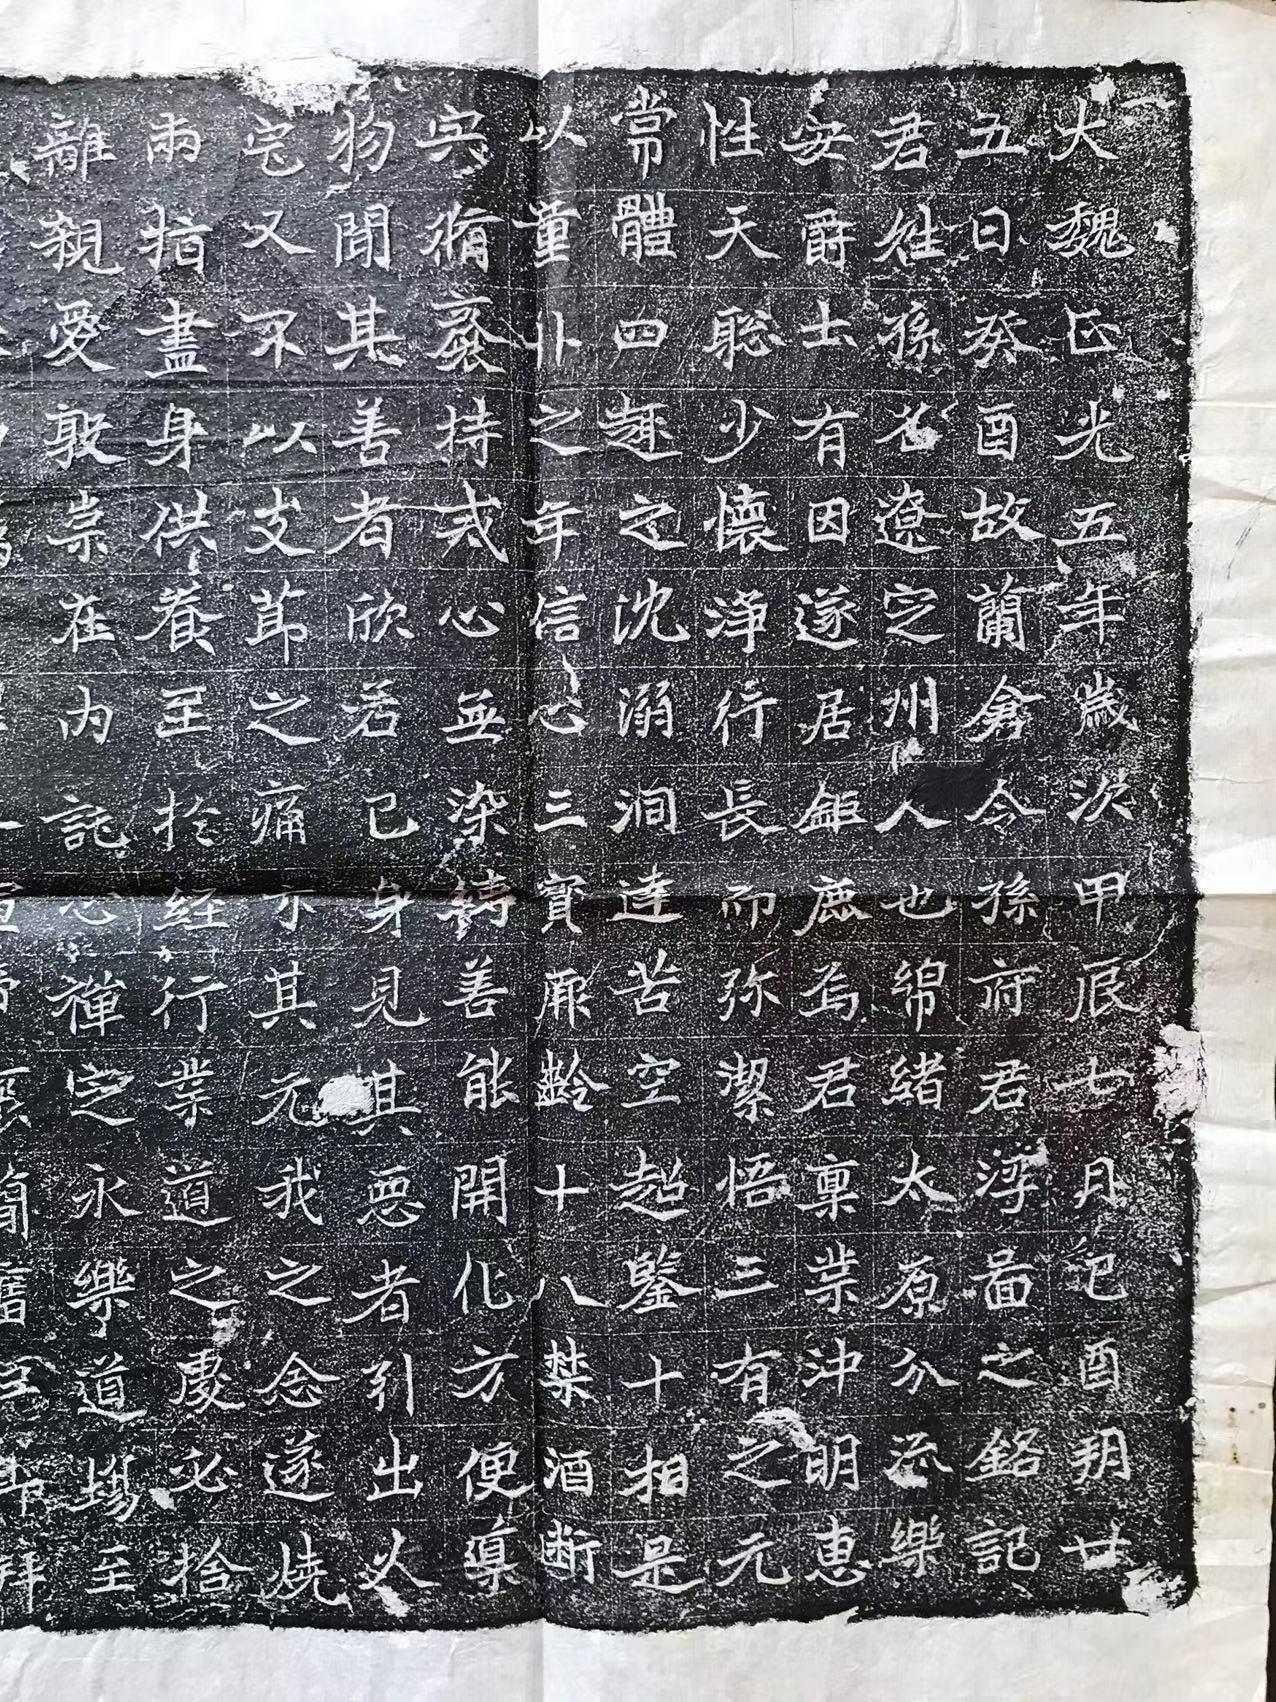 大魏正光五年歲次甲辰七月己酉朔廿
五日癸酉故蘭倉令孫府君浮啚之銘記
君姓孫名遼定州人也綿緒太原分流樂
安爵士有因遂居鉅鹿焉君稟業沖明惠
性天聡少懷淨行長而弥潔悟三有之无
常體四趣之沈溺洞達苦空超鑒十相是
以童丱之年信心三寶厥齡十八禁酒断
宍脩齋持戒心無染縛善能開化方便導
物聞其善者欣若已身見其惡者引出火
宅又不以支節之痛示其无我之念遂燒
兩指盡身供養至於経行業道之處必捨
離親愛敦崇在内託志禪定永樂道場至